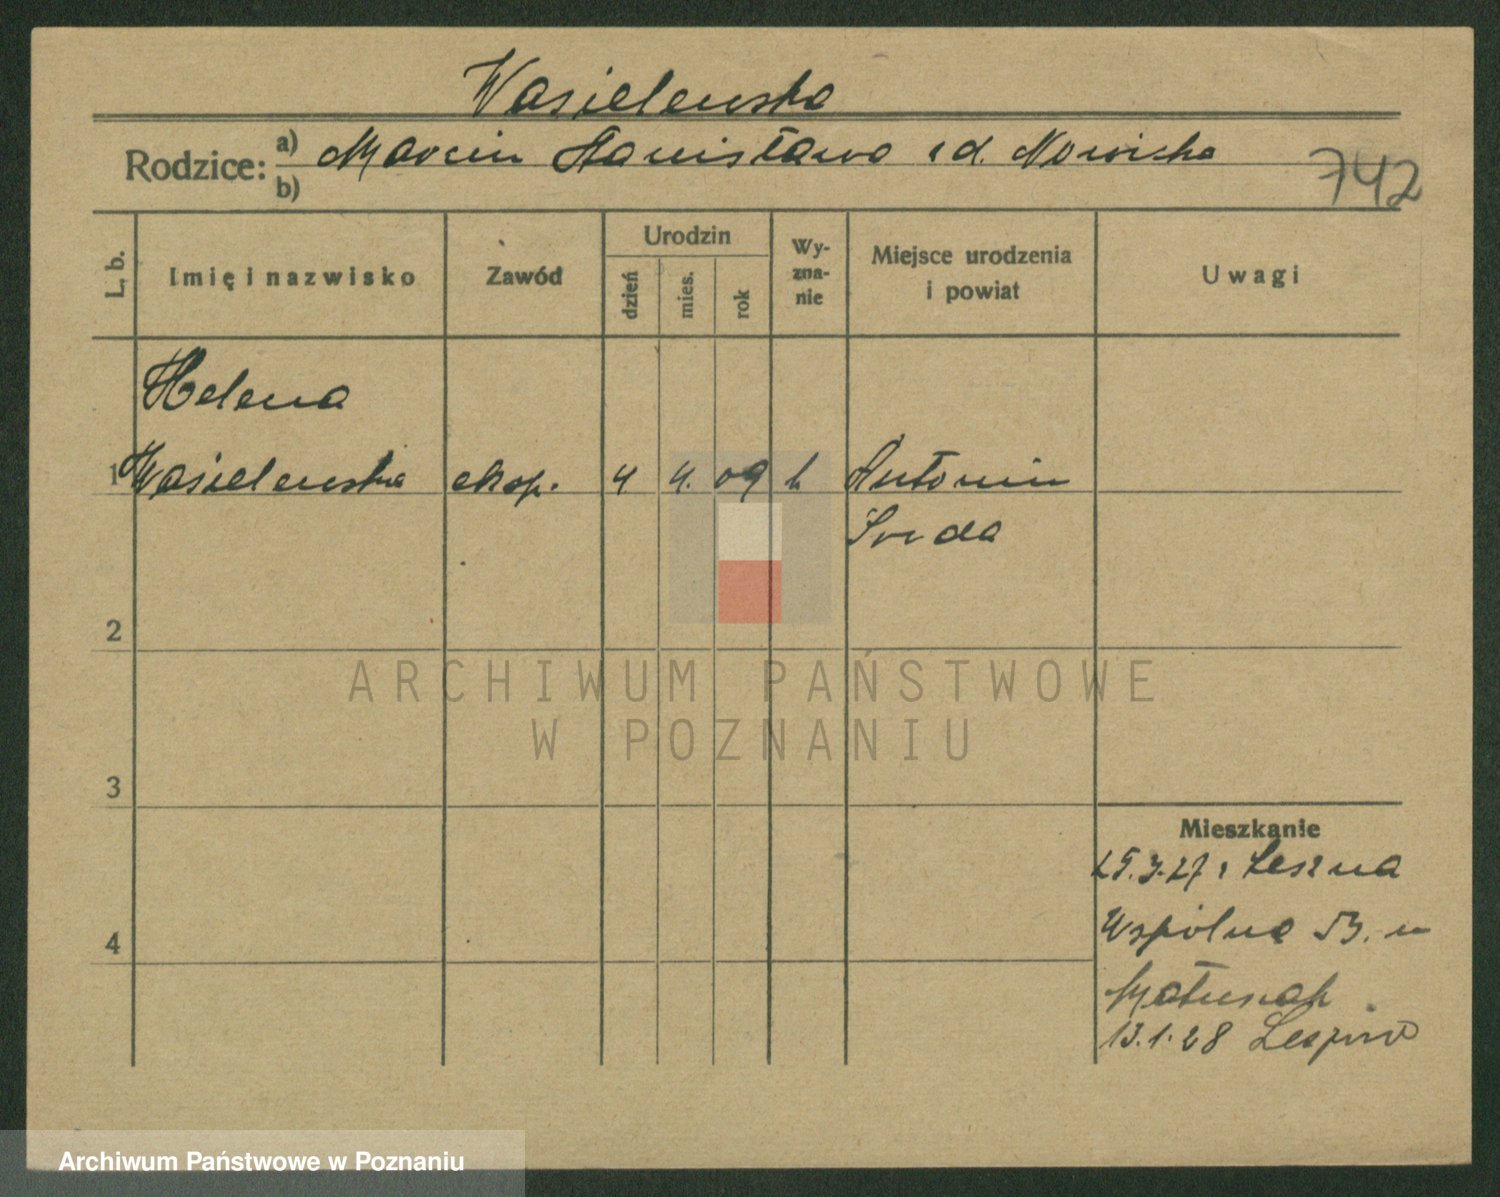 Wasielewska
Rodzice: a) Marcin Stanisława z d. Nowicka
b)
742
L. b. Imię i nazwisko Zawód Urodzin dzień mies. rok Wyzna-nie Miejsce urodzenia i powiat Uwagi
Helena
1 Wasielewska eksp. 4 4. 09 k Antonin
Środa
2
ARCHIWUM PAŃSTWOWE
W POZNANIU
3
Mieszkanie
25.3.27 z Leszna
4 Wspólna 53. m
Matuszak
13.1.28 Leszno
Archiwum Państwowe w Poznaniu